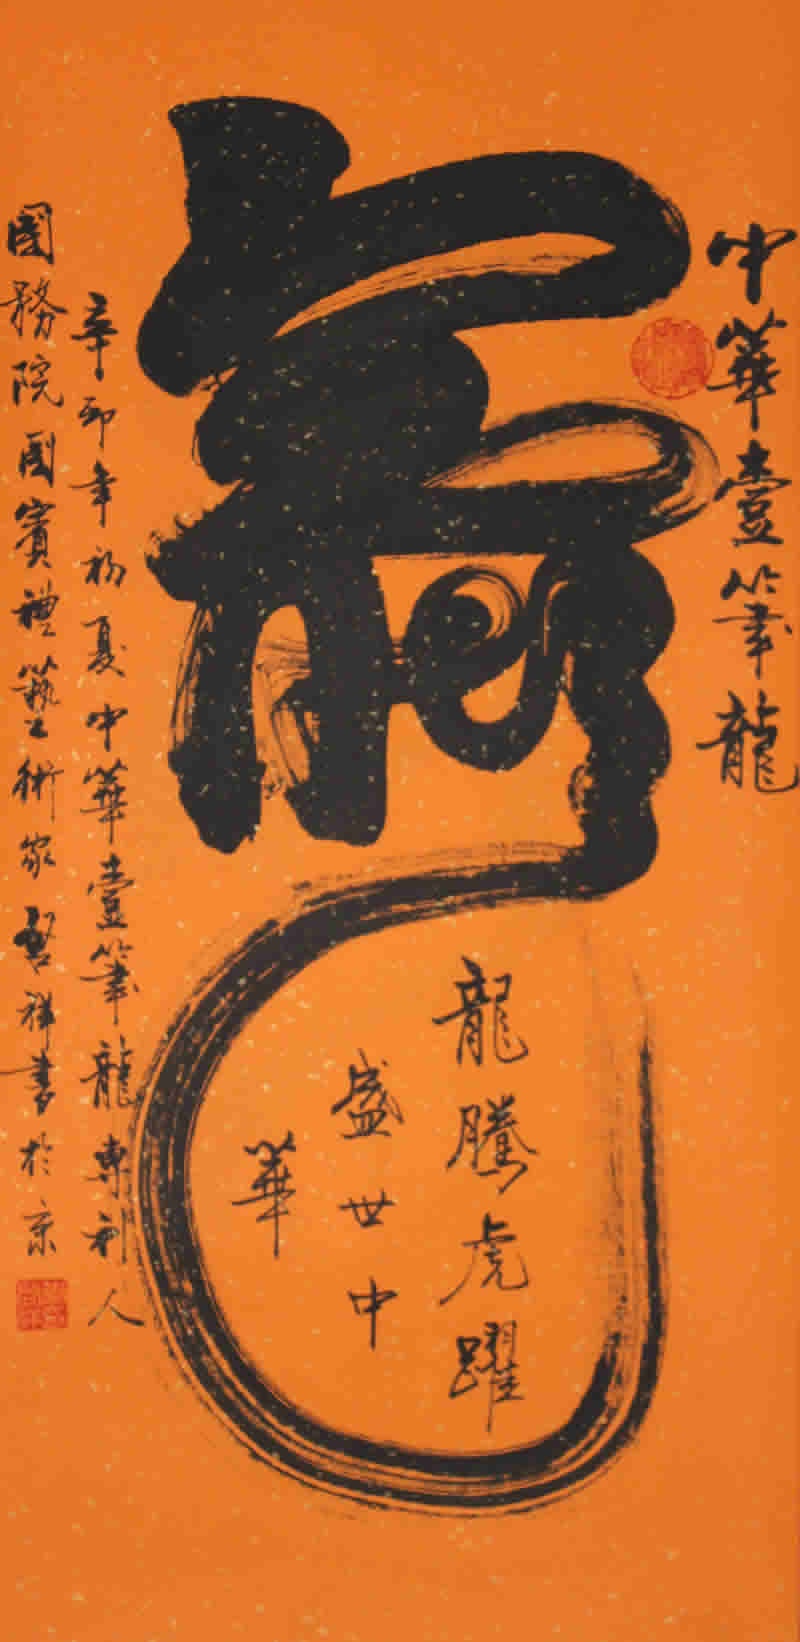 龍
中華壹筆龍
龍騰虎躍
盛世中
華
辛卯年初夏中華壹筆龍專利人
國務院國賓禮藝術家啟祥書於京